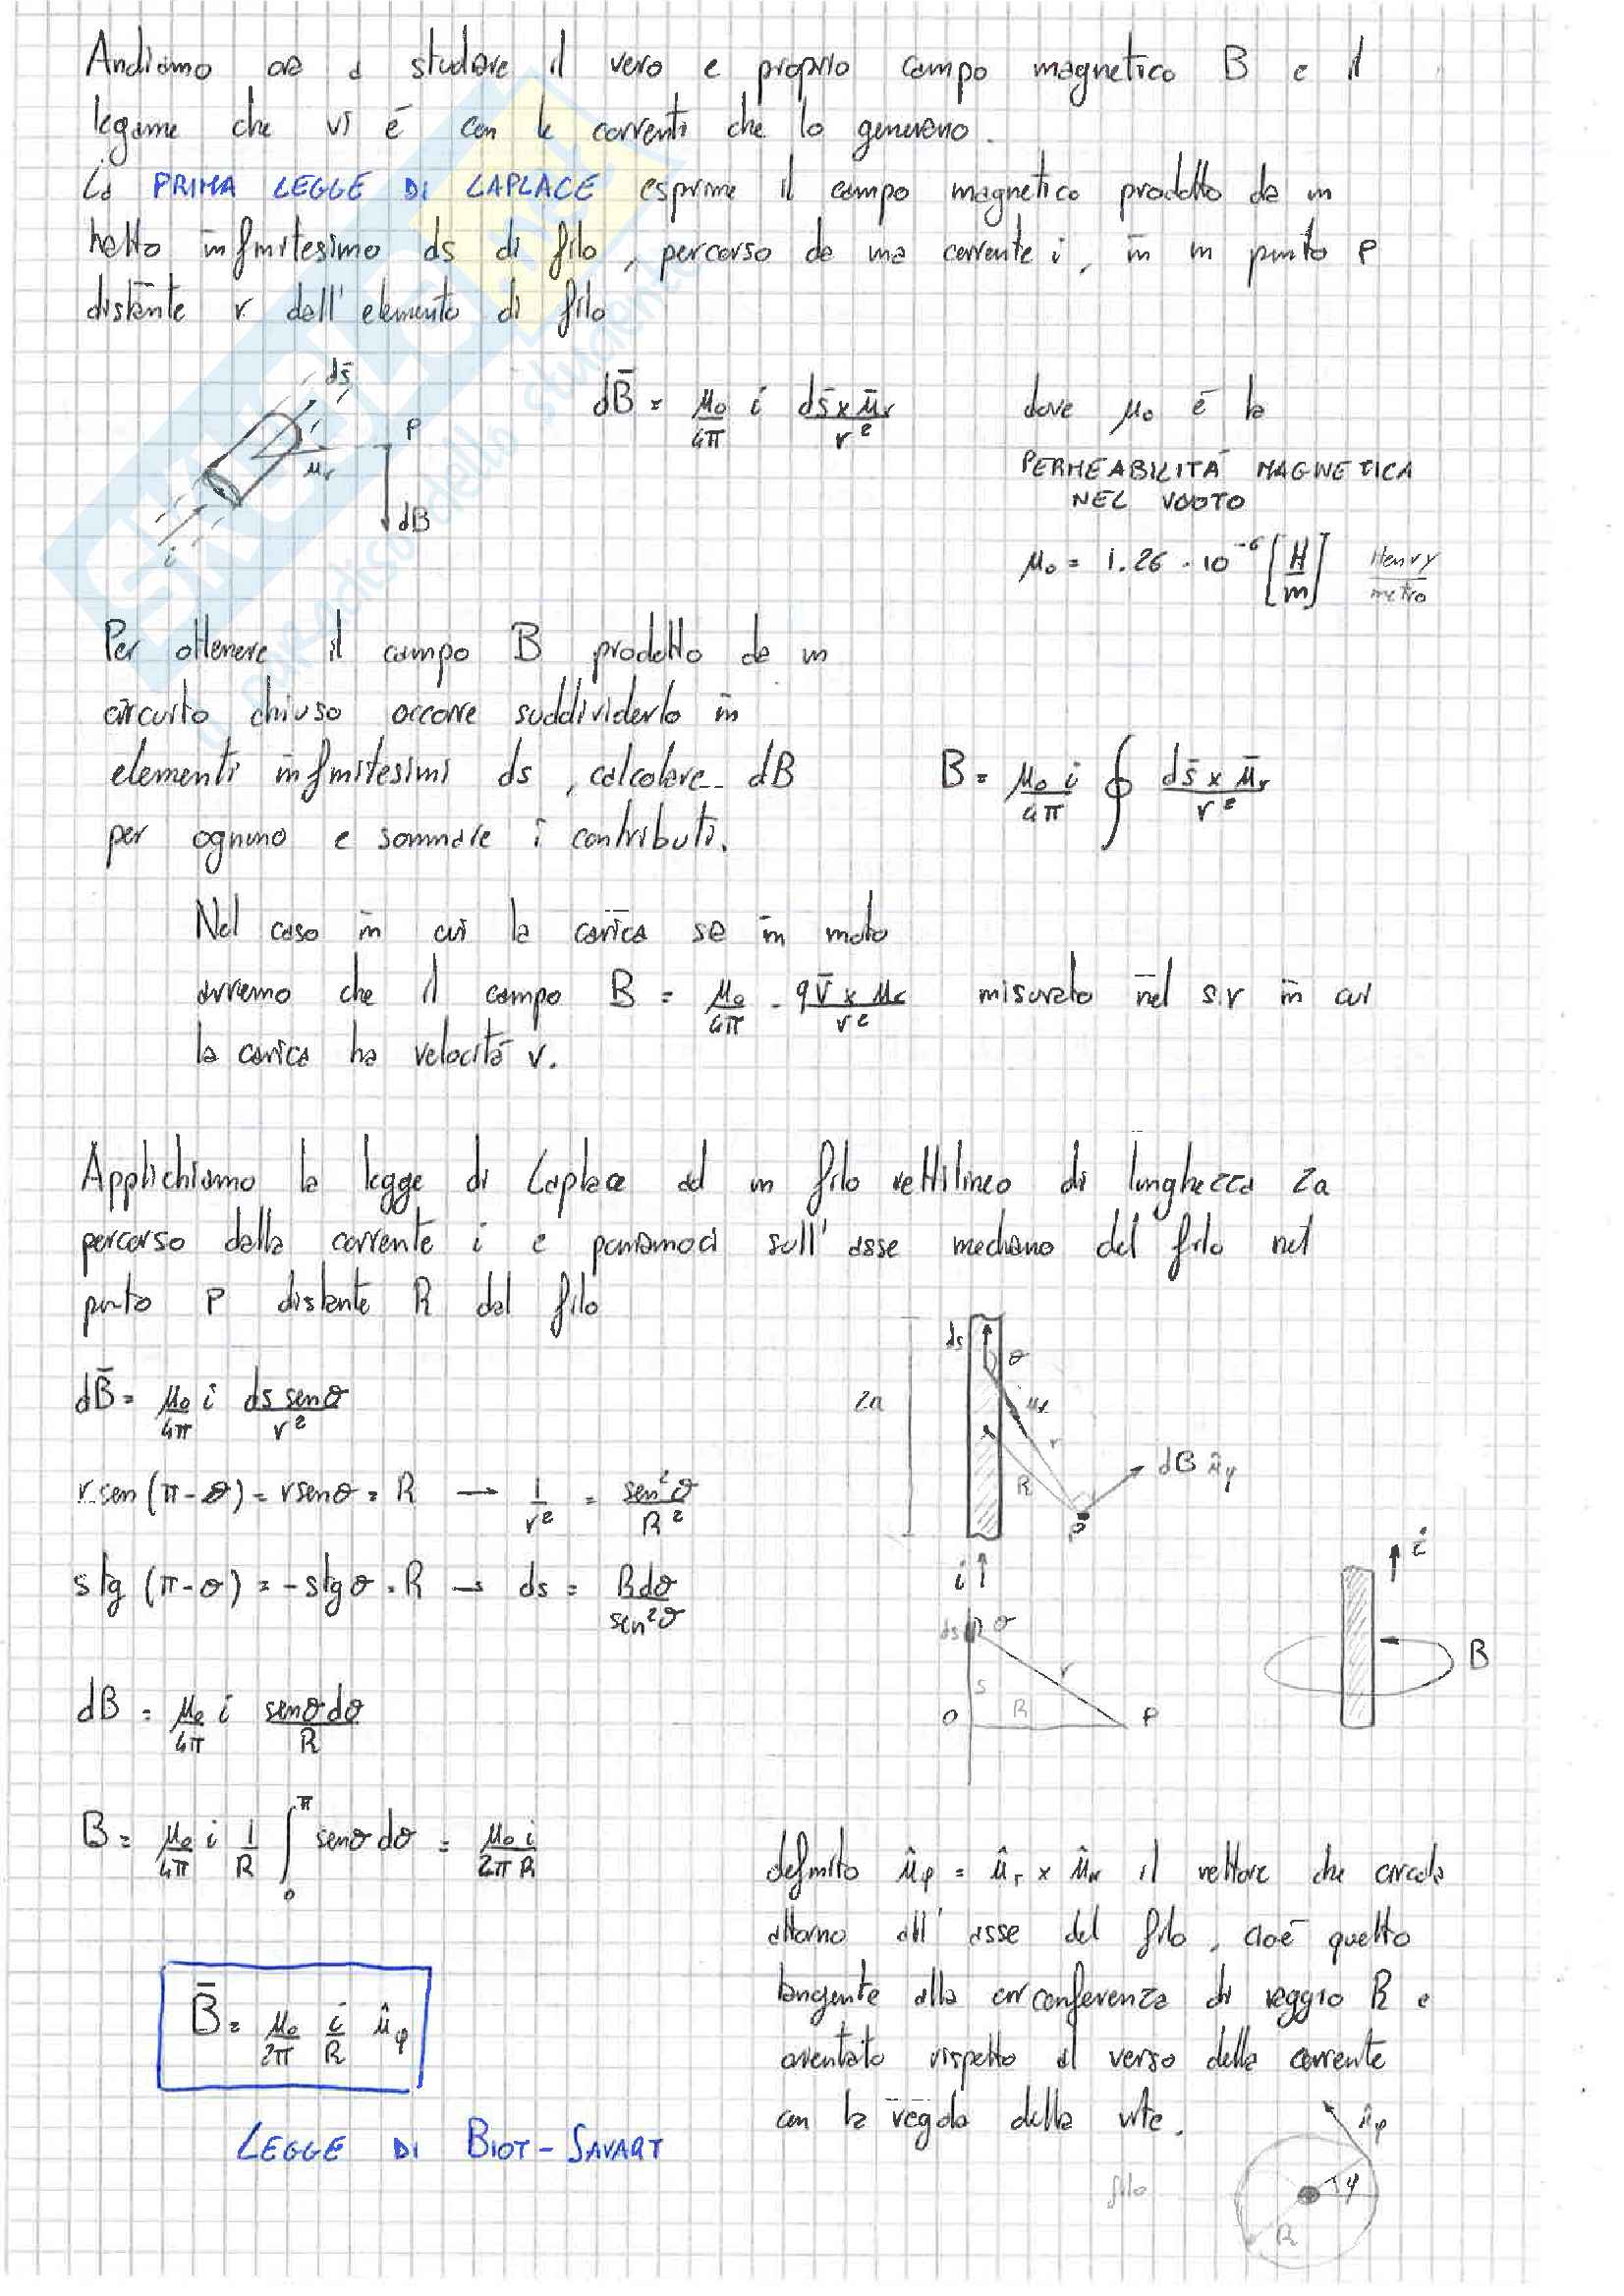 Andiamo ora a studiare il vero e proprio campo magnetico B e il
legame che vi è con le correnti che lo generano.
La PRIMA LEGGE DI LAPLACE esprime il campo magnetico prodotto da un
tratto infinitesimo ds di filo, percorso da una corrente i, in un punto P
distante r dall'elemento di filo
ds̄
P
u_r
dB
i
dB̄ = μ₀/4π i ds̄ x ū_r/r²
dove μ₀ è la
PERMEABILITÀ MAGNETICA
NEL VUOTO
μ₀ = 1.26 · 10⁻⁶ [H/m] Henry/metro
Per ottenere il campo B prodotto da un
circuito chiuso occorre suddividerlo in
elementi infinitesimi ds, calcolare dB
per ognuno e sommare i contributi.
B = μ₀ i/4π ∮ ds̄ x ū_r/r²
Nel caso in cui la carica sia in moto
avremo che il campo B = μ₀/4π · q v̄ x u_r/r² misurato nel s.r in cui
la carica ha velocità v.
Applichiamo la legge di Laplace ad un filo rettilineo di lunghezza 2a
percorso dalla corrente i e poniamoci sull'asse mediano del filo nel
punto P distante R dal filo
dB̄ = μ₀/4π i ds senθ/r²
r sen(π-θ) = r senθ = R → 1/r² = sen²θ/R²
s tg (π-θ) = -s tgθ = R → ds = R dθ/sen²θ
dB = μ₀/4π i senθ dθ/R
B = μ₀/4π i 1/R ∫₀^π senθ dθ = μ₀ i/2π R
B̄ = μ₀/2π i/R û_φ
LEGGE DI BIOT-SAVART
ds
θ
2a
u_r
r
R
dB û_φ
P
i
ds θ
r
s
O R P
i
B
definito û_φ = û_r x û_n il vettore che circola
attorno all'asse del filo, cioè quello
tangente alla circonferenza di raggio R e
orientato rispetto al verso della corrente
con la regola della vite.
û_φ
filo
φ
R
SKUOLA.net
il paradiso dello studente